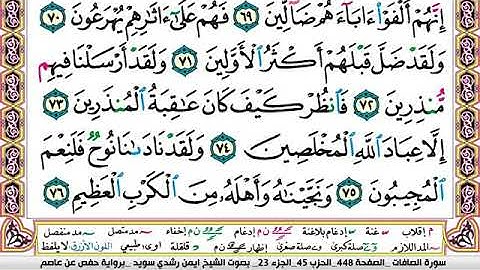 إِنَّهُمْ أَلْفَوْا۟ ءَابَآءَهُمْ ضَآلِّينَ ٦٩ فَهُمْ عَلَىٰٓ ءَاثَـٰرِهِمْ يُهْرَعُونَ ٧٠
وَلَقَدْ ضَلَّ قَبْلَهُمْ أَكْثَرُ ٱلْأَوَّلِينَ ٧١ وَلَقَدْ أَرْسَلْنَا فِيهِم
مُّنذِرِينَ ٧٢ فَٱنظُرْ كَيْفَ كَانَ عَـٰقِبَةُ ٱلْمُنذَرِينَ ٧٣
إِلَّا عِبَادَ ٱللَّهِ ٱلْمُخْلَصِينَ ٧٤ وَلَقَدْ نَادَىٰنَا نُوحٌ فَلَنِعْمَ
ٱلْمُجِيبُونَ ٧٥ وَنَجَّيْنَـٰهُ وَأَهْلَهُۥ مِنَ ٱلْكَرْبِ ٱلْعَظِيمِ ٧٦
م إقلاب غنة إدغام بلاغنة إدغام إخفاء مد متصل مد منفصل
المد اللازم صلة كبرى صلة صغرى إظهار قلقلة طبيعي اللون الأزرق لا يلفظ
سورة الصافات _الصفحة 448_الحزب 45_الجزء 23_ بصوت الشيخ ايمن رشدي سويد _برواية حفص عن عاصم